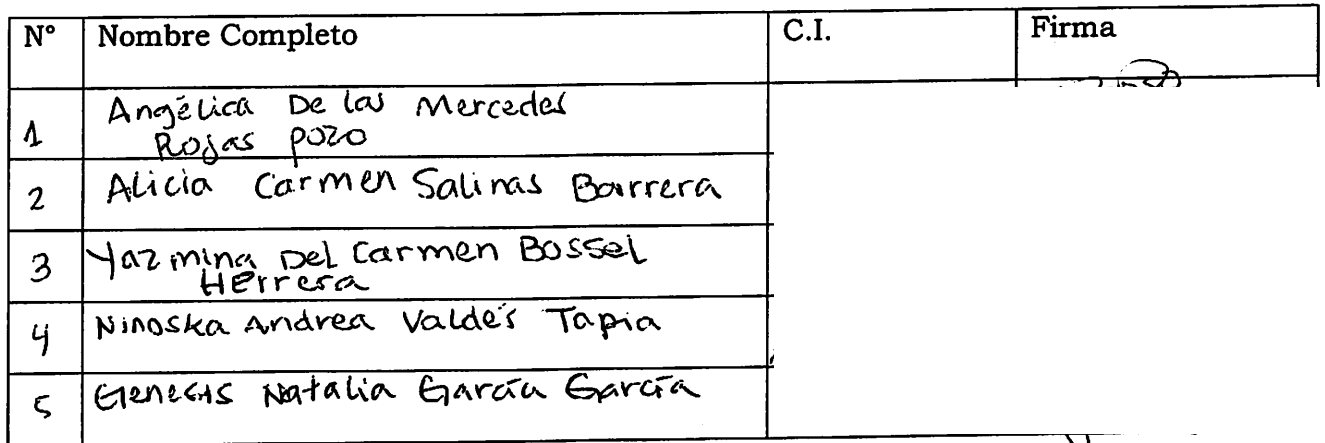 N° Nombre Completo C.I. Firma
1 Angélica De las Mercedes
Rojas pozo
2 Alicia Carmen Salinas Barrera
3 Yazmina Del Carmen Bossel
Herrera
4 Ninoska Andrea Valdés Tapia
5 Genesis Natalia García García